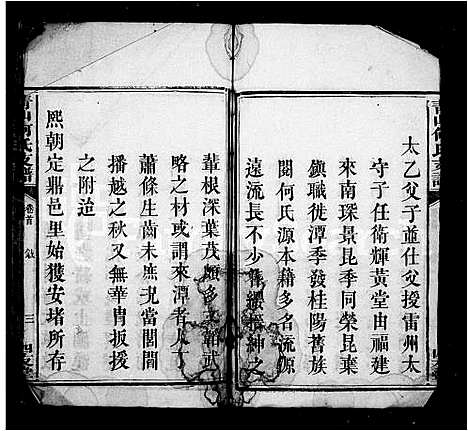 太乙父子並仕父授雷州太
守子任衛輝黃堂由福建
來南琛景昆季同榮昆棄
鎮職徙潭季發桂陽舊族
閱何氏源本籍多名流源
遠流長不少簪纓縉紳之
輩根深葉茂頗多文韜武
略之材或謂來潭者人丁
蕭條生齒未廡況當閫閫
播越之秋又無華胄扳援
之附迨
熙朝定鼎邑里始獲安堵所存
青山何氏支譜
卷首
敘
三